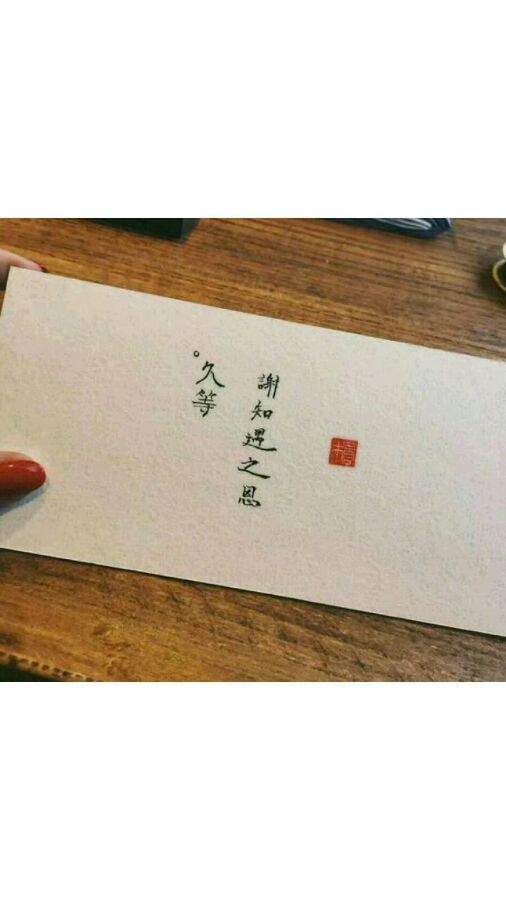 謝知遇之恩
°久等